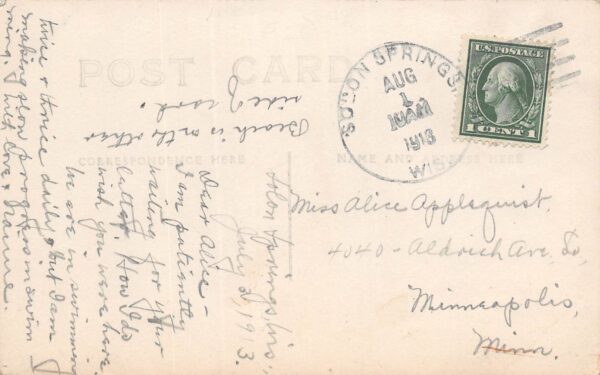 POST CARD
CORRESPONDENCE HERE
NAME AND ADDRESS HERE
SOLON SPRINGS
AUG
1
10AM
1913
WIS
U.S. POSTAGE
1 CENT 1
Miss Alice Applequist.
4040 - Aldrich Ave. So,
Minneapolis,
Minn.
Solon Springs, Wis,
July 31, 1913.
Dear Alice -
I am patiently
waiting for your
letter. How I do
wish you were here.
We are in swimming
twice & thrice daily, but I am
making slow progress in swim
ming. Much love &
Beach is on the other
side of card.